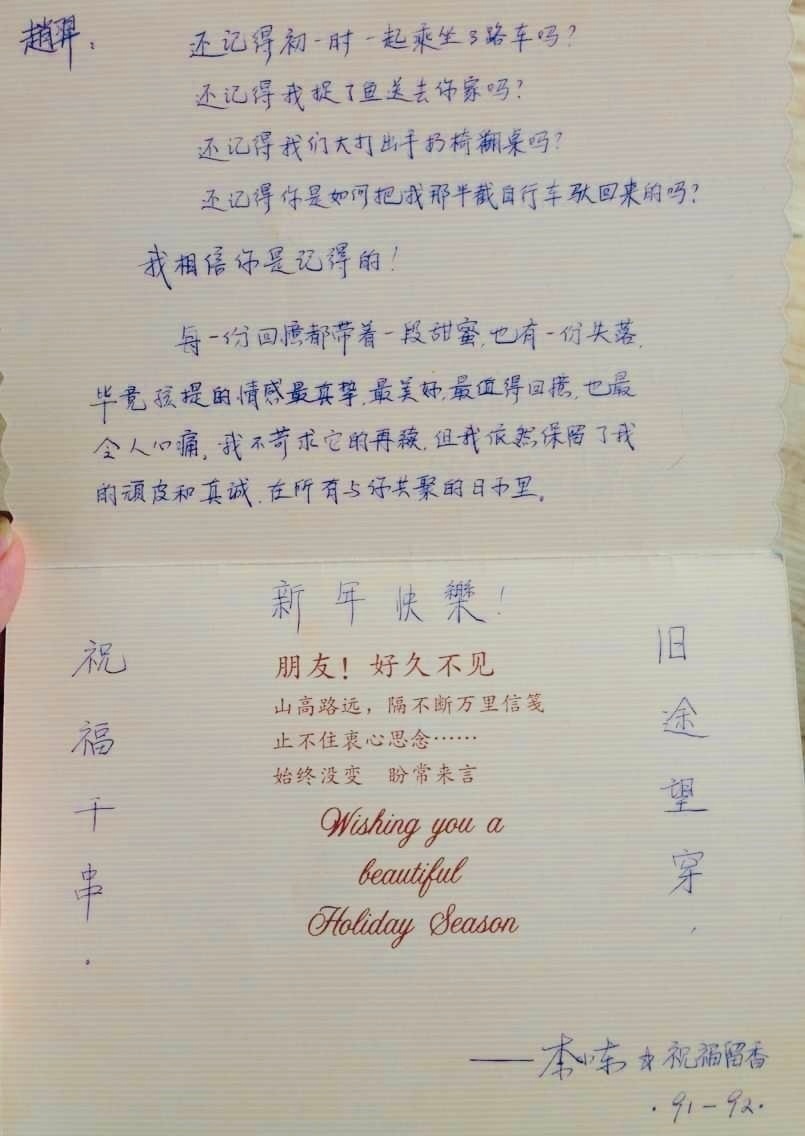 趙羿：
还记得初一时一起乘坐3路车吗？
还记得我捉了鱼送去你家吗？
还记得我们大打出手扔椅翻桌吗？
还记得你是如何把我那半截自行车驮回来的吗？
我相信你是记得的！
每一份回憶都带着一段甜蜜，也有一份失落，
毕竟孩提的情感最真挚，最美好，最值得回憶，也最
令人心痛，我不苛求它的再续，但我依然保留了我
的顽皮和真诚，在所有与你共聚的日子里。
新年快樂！
旧途望穿，
祝福千串．
朋友！好久不见
山高路远，隔不断万里信笺
止不住衷心思念……
始终没变 盼常来言
Wishing you a
beautiful
Holiday Season
——李 东 祝福留香
．91－92．